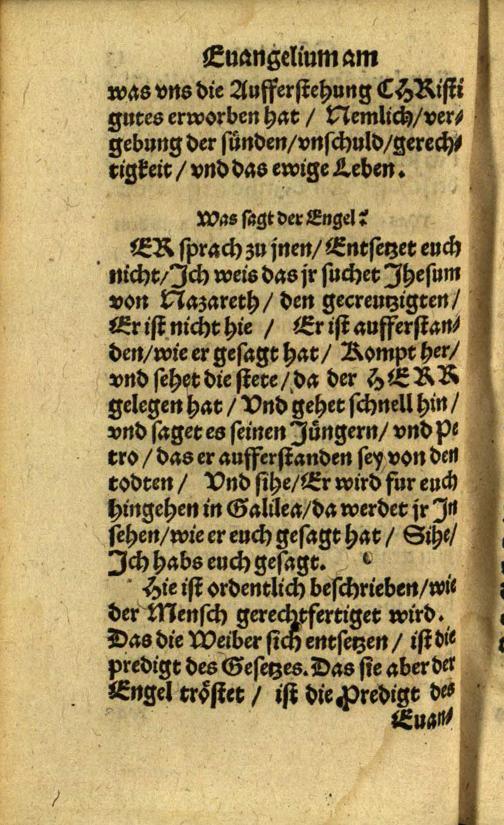 Euangelium am
was vns die Aufferstehung CHRisti
gutes erworben hat / Nemlich/ver⸗
gebung der sünden/vnschuld/gerech⸗
tigkeit / vnd das ewige Leben.
Was sagt der Engel?
ER sprach zu jnen/Entsetzet euch
nicht/Ich weis das jr suchet Jhesum
von Nazareth / den gecreutzigten/
Er ist nicht hie / Er ist aufferstan⸗
den/wie er gesagt hat / Kompt her/
vnd sehet die stete/da der HERR
gelegen hat / Vnd gehet schnell hin/
vnd saget es seinen Jüngern/ vnd Pe
tro / das er aufferstanden sey von den
todten / Vnd sihe/Er wird fur euch
hingehen in Galilea/da werdet jr Jn
sehen/wie er euch gesagt hat / Sihe/
Ich habs euch gesagt.
Hie ist ordentlich beschrieben/wie
der Mensch gerechtfertiget wird.
Das die Weiber sich entsetzen / ist die
predigt des Gesetzes. Das sie aber der
Engel tröstet / ist die Predigt des
Euan⸗